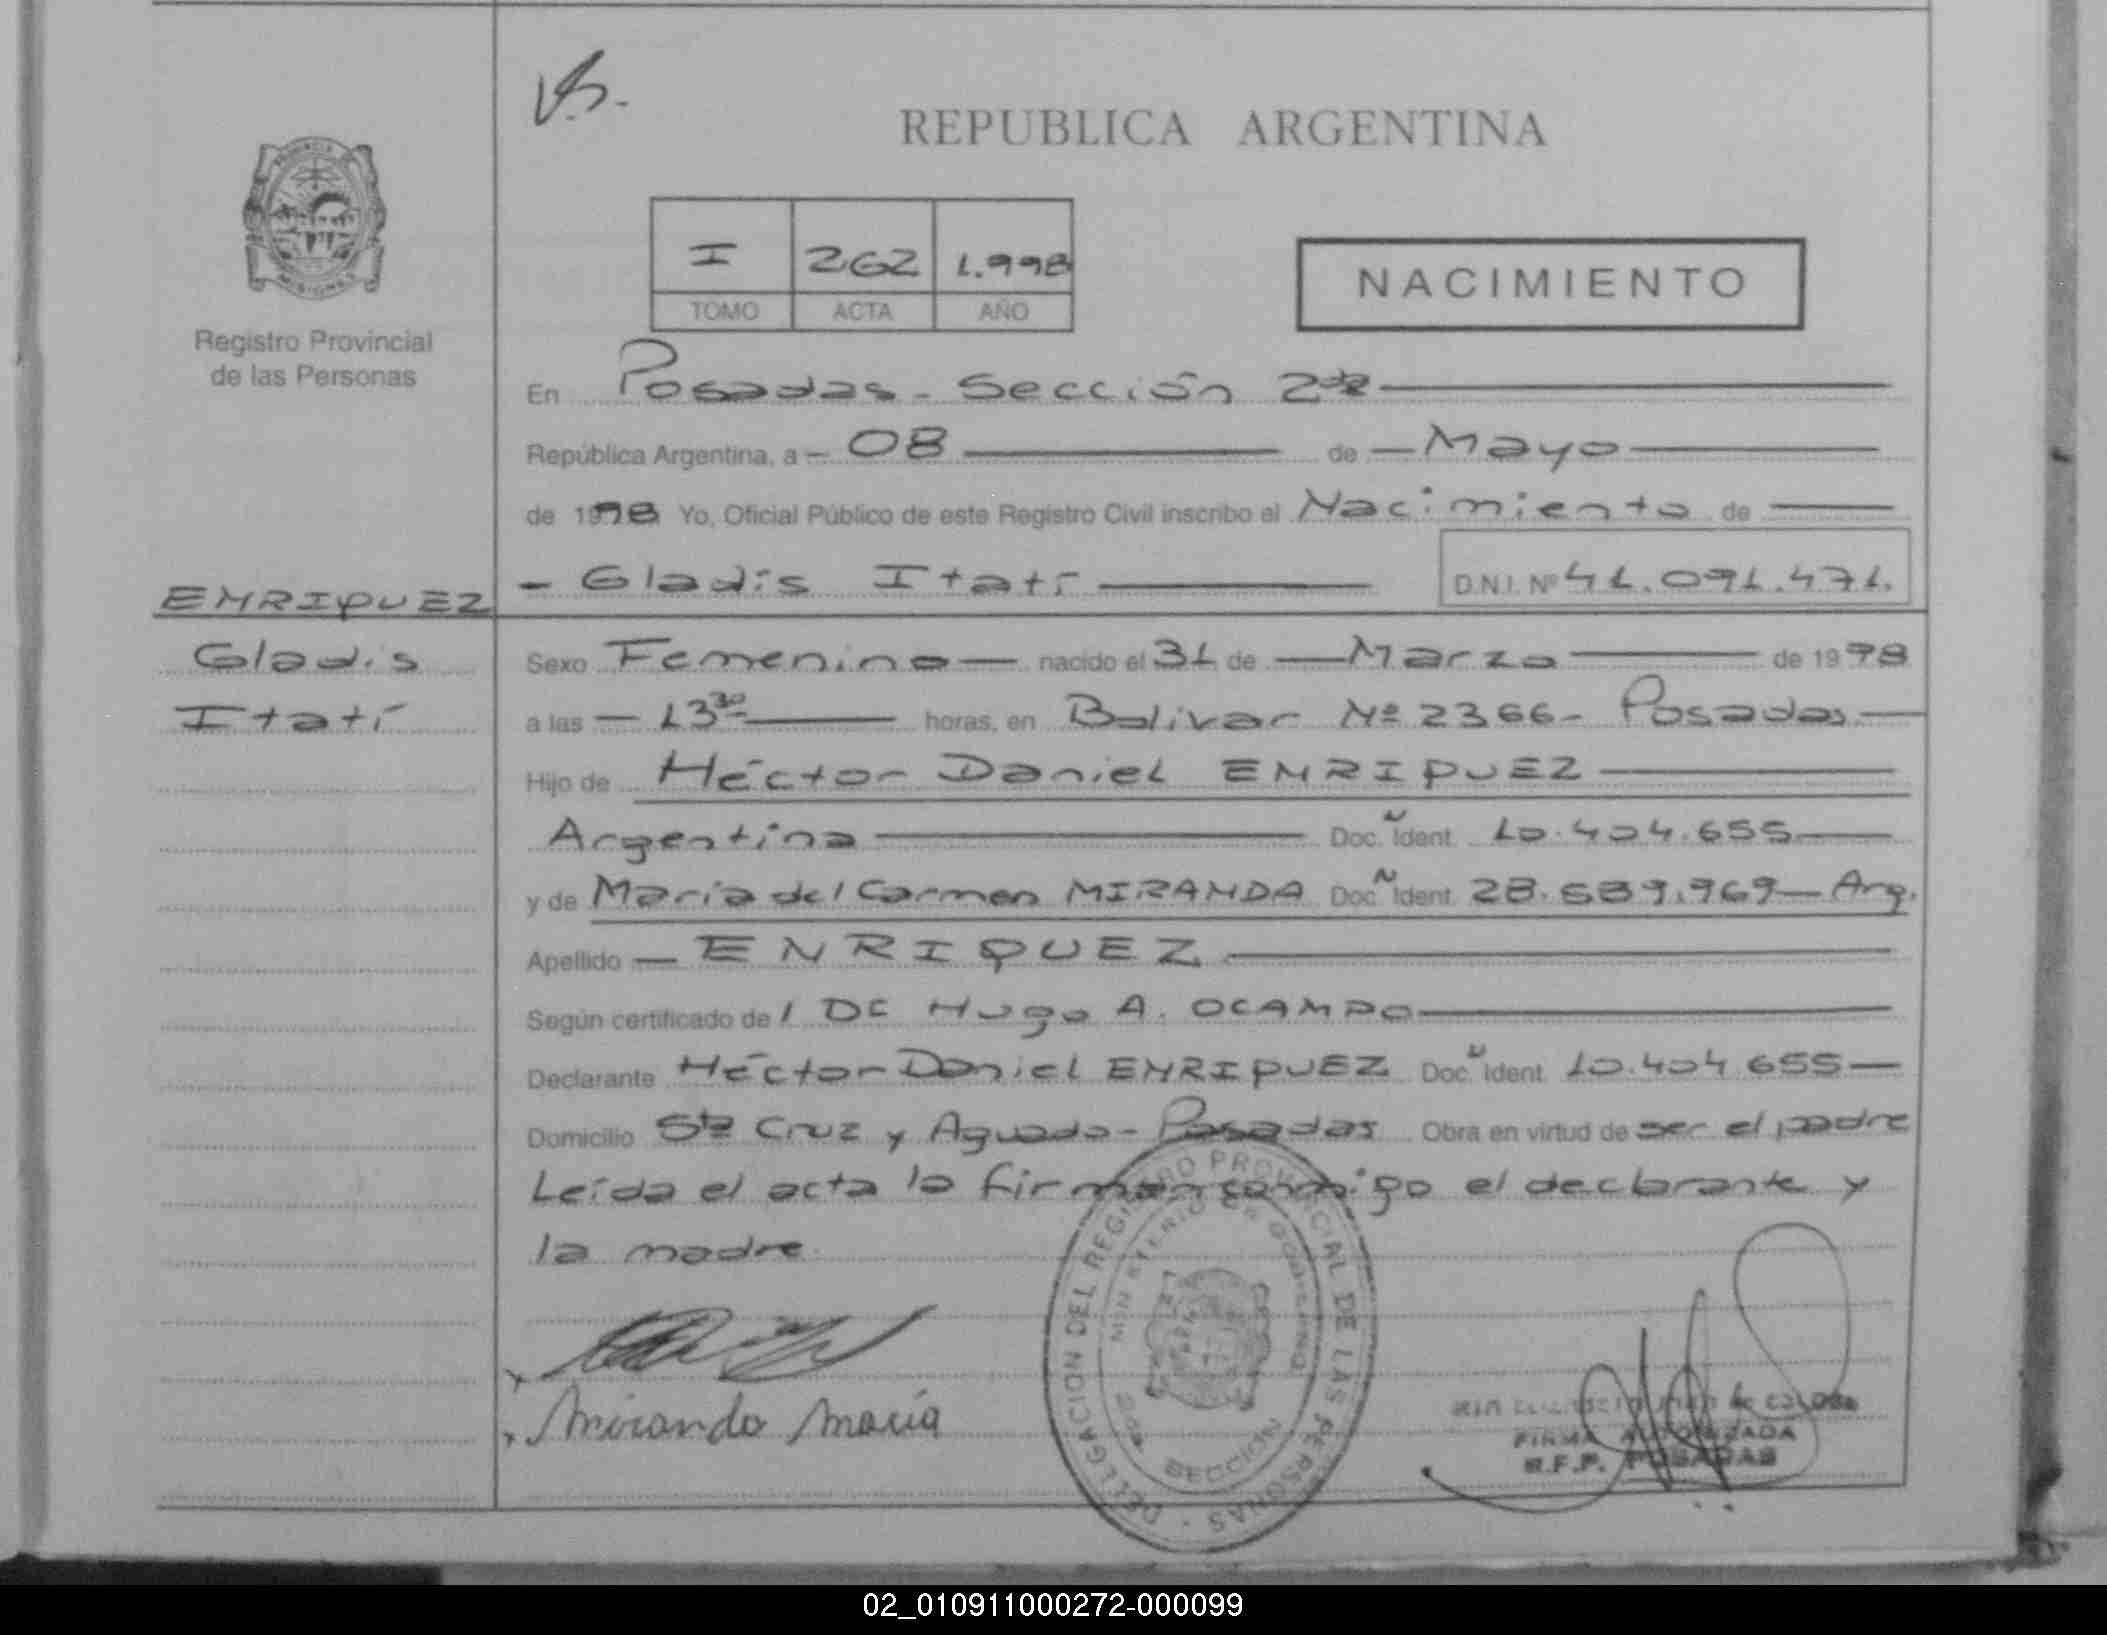 V.B.
REPUBLICA ARGENTINA
PROVINCIA
MISIONES
Registro Provincial
de las Personas
I 262 1.998
TOMO ACTA AÑO
NACIMIENTO
En Posadas - Sección 2da
República Argentina, a - 08 de - Mayo
de 1998 Yo, Oficial Público de este Registro Civil inscribo el Nacimiento de
- Gladis Itatí D.N.I. Nº 41.091.471.
ENRIQUEZ
Gladis
Itatí
Sexo Femenino nacido el 31 de Marzo de 1998
a las 13 30 horas, en Bolivar Nº 2366 - Posadas
Hijo de Héctor Daniel ENRIQUEZ
Argentina Doc. Ident. 10.404.655
y de María del Carmen MIRANDA Doc. Ident. 28.689.969 - Arg.
Apellido - ENRIQUEZ
Según certificado de / Dr Hugo A. OCAMPO
Declarante Héctor Daniel ENRIQUEZ Doc. Ident. 10.404.655
Domicilio Sta Cruz y Aguado - Posadas Obra en virtud de ser el padre
Leída el acta la firman conmigo el declarante y
la madre.
x Miranda María
DELEGACION DEL REGISTRO PROVINCIAL DE LAS PERSONAS
MINISTERIO DE GOBIERNO
2da SECCION
FIRMA AUTORIZADA
R.P.P. POSADAS
02_010911000272-000099